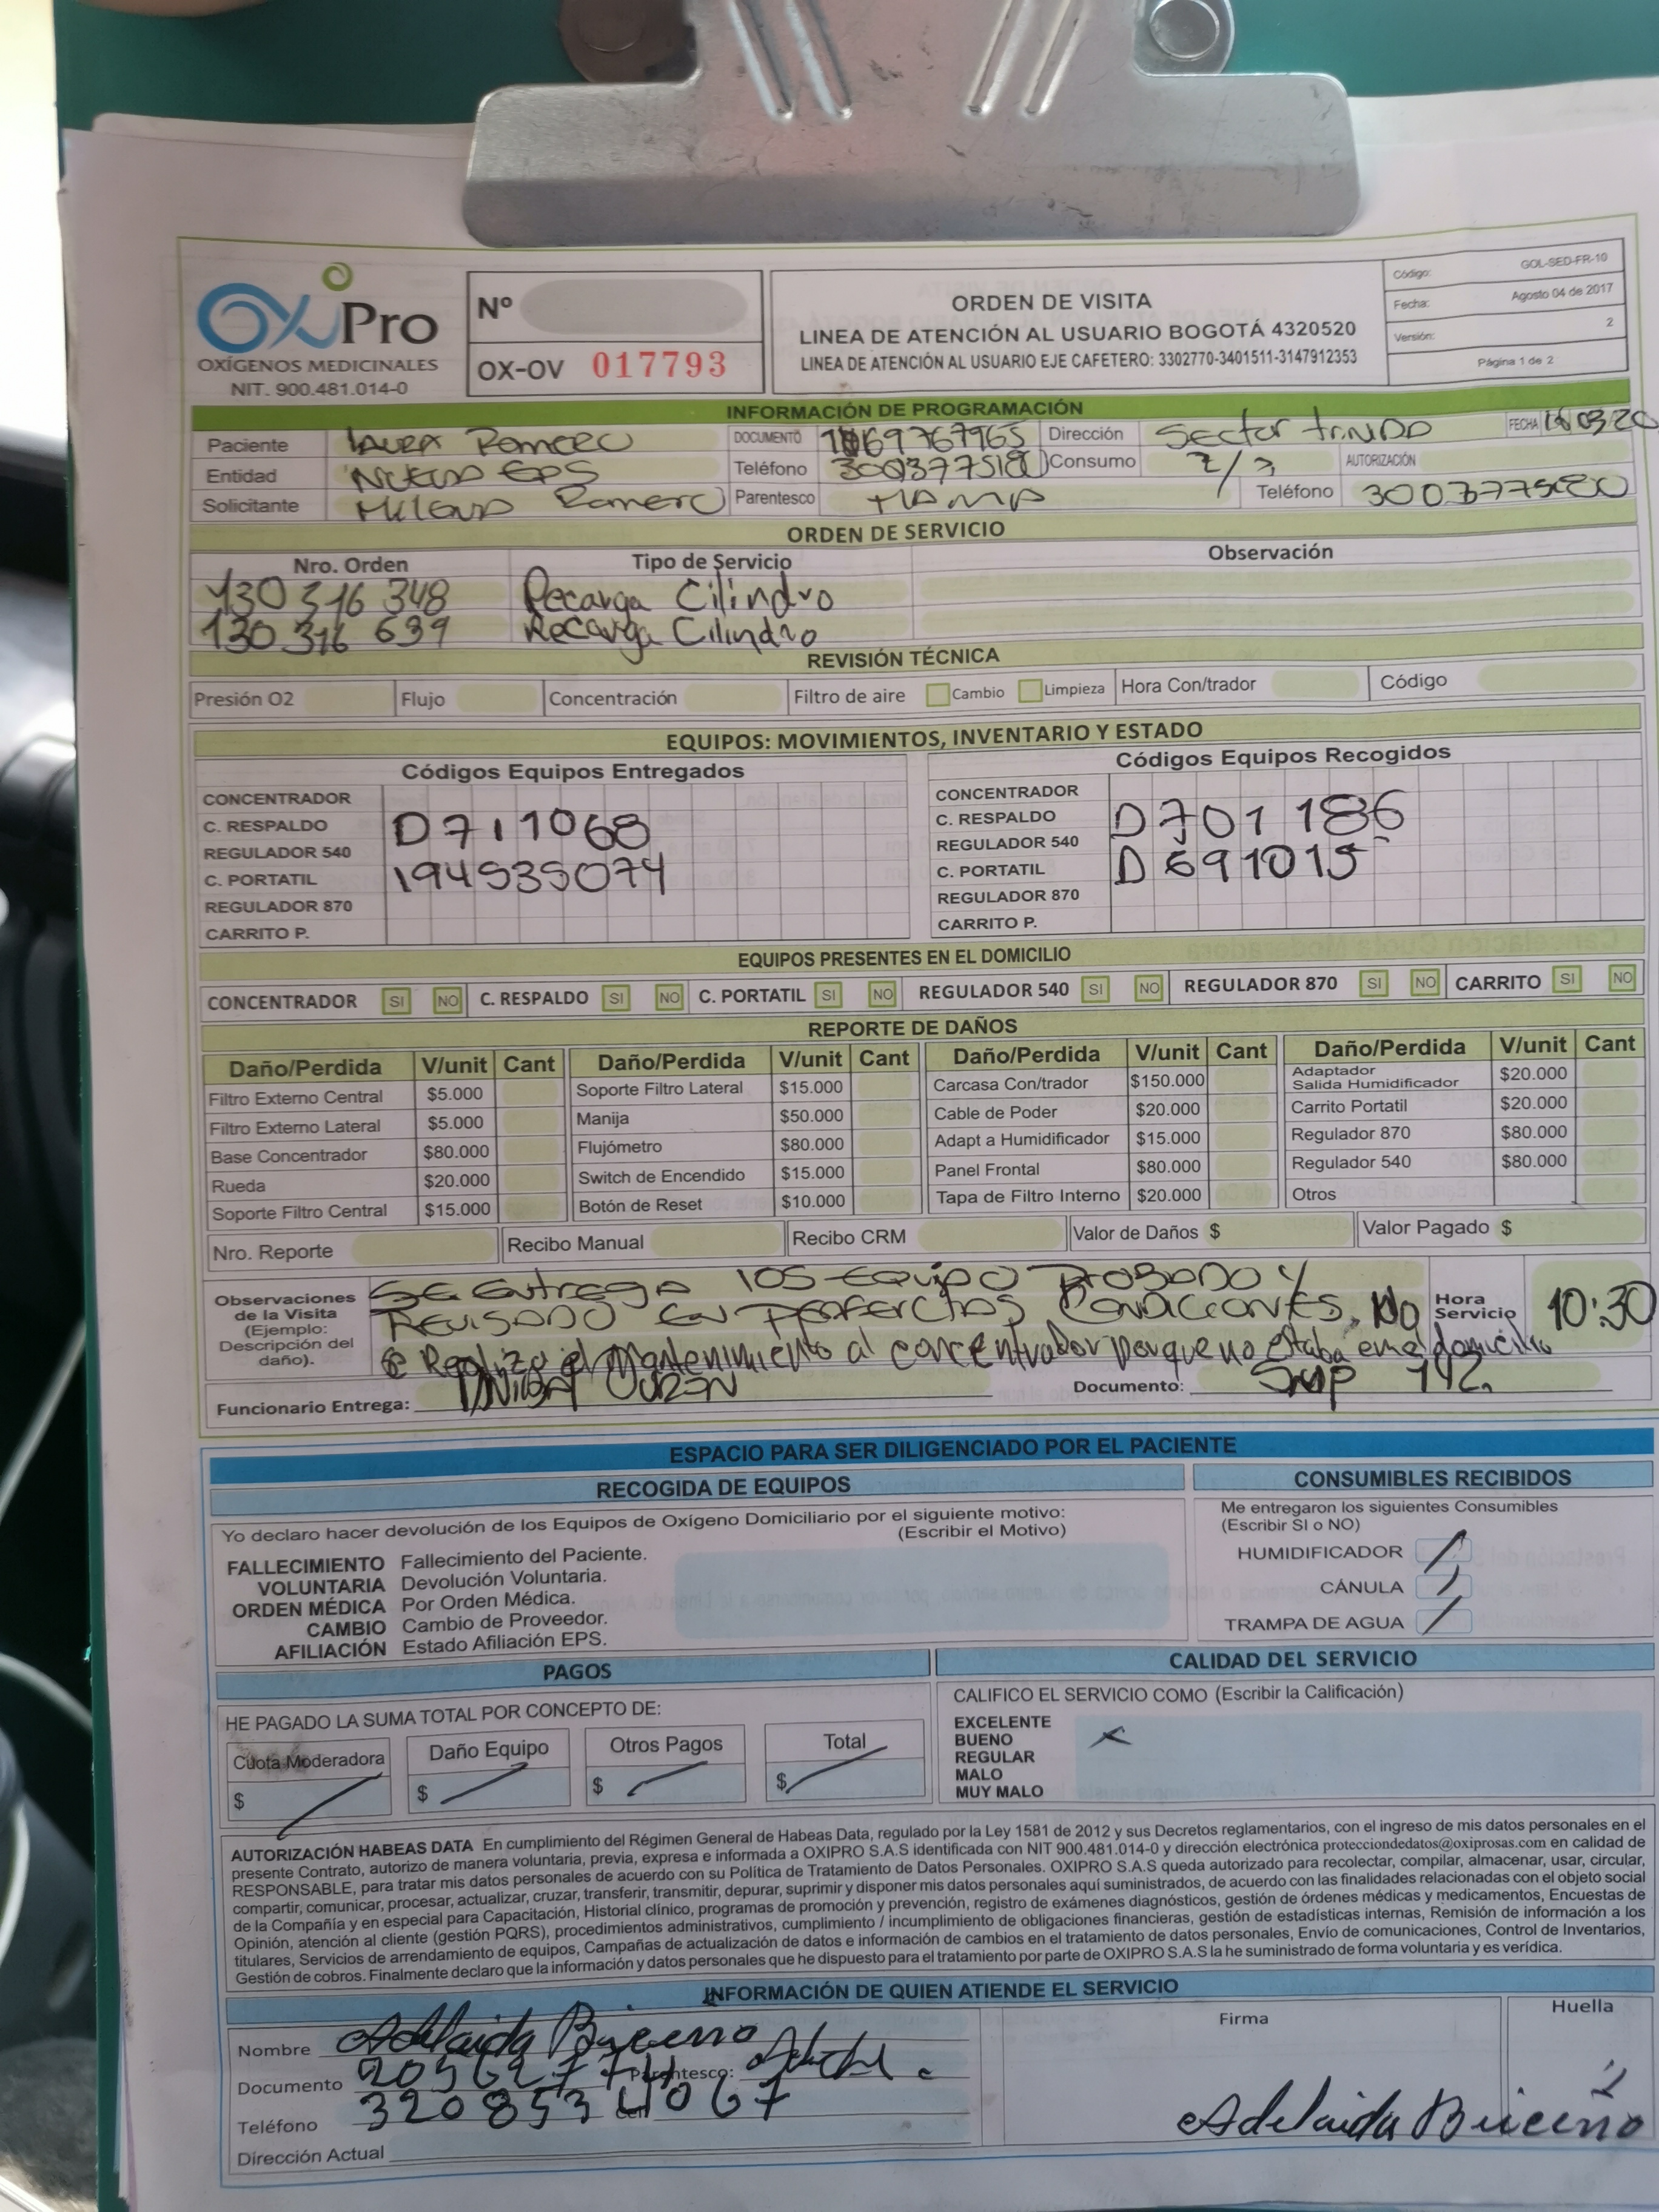 OxiPro
OXÍGENOS MEDICINALES
NIT. 900.481.014-0
Nº
OX-OV 017793
ORDEN DE VISITA
LINEA DE ATENCIÓN AL USUARIO BOGOTÁ 4320520
LINEA DE ATENCIÓN AL USUARIO EJE CAFETERO: 3302770-3401511-3147912353
Código: GOL-SED-FR-10
Fecha: Agosto 04 de 2017
Versión: 2
Página 1 de 2
INFORMACIÓN DE PROGRAMACIÓN
Paciente Laura Romero DOCUMENTO 1069767965 Dirección Sector FECHA
Entidad Nueva EPS Teléfono Consumo AUTORIZACIÓN
Solicitante Milena Romero Parentesco MAMA Teléfono
ORDEN DE SERVICIO
Nro. Orden Tipo de Servicio Observación
130 316 348 Recarga Cilindro
130 316 639 Recarga Cilindro
REVISIÓN TÉCNICA
Presión O2 Flujo Concentración Filtro de aire Cambio Limpieza Hora Con/trador Código
EQUIPOS: MOVIMIENTOS, INVENTARIO Y ESTADO
Códigos Equipos Entregados
CONCENTRADOR
C. RESPALDO D711068
REGULADOR 540
C. PORTATIL 194535074
REGULADOR 870
CARRITO P.
Códigos Equipos Recogidos
CONCENTRADOR
C. RESPALDO D701186
REGULADOR 540
C. PORTATIL D691015
REGULADOR 870
CARRITO P.
EQUIPOS PRESENTES EN EL DOMICILIO
CONCENTRADOR SI NO C. RESPALDO SI NO C. PORTATIL SI NO REGULADOR 540 SI NO REGULADOR 870 SI NO CARRITO SI NO
REPORTE DE DAÑOS
Daño/Perdida V/unit Cant Daño/Perdida V/unit Cant Daño/Perdida V/unit Cant Daño/Perdida V/unit Cant
Filtro Externo Central $5.000 Soporte Filtro Lateral $15.000 Carcasa Con/trador $150.000 Adaptador Salida Humidificador $20.000
Filtro Externo Lateral $5.000 Manija $50.000 Cable de Poder $20.000 Carrito Portatil $20.000
Base Concentrador $80.000 Flujómetro $80.000 Adapt a Humidificador $15.000 Regulador 870 $80.000
Rueda $20.000 Switch de Encendido $15.000 Panel Frontal $80.000 Regulador 540 $80.000
Soporte Filtro Central $15.000 Botón de Reset $10.000 Tapa de Filtro Interno $20.000 Otros
Nro. Reporte Recibo Manual Recibo CRM Valor de Daños $ Valor Pagado $
Observaciones de la Visita (Ejemplo: Descripción del daño).
SE Entrega los Equipo Probado y
Revisado En Condiciones. No
Realizo el Mantenimiento al concentrador porque no estaba en el domicilio
Hora Servicio 10:30
Funcionario Entrega: Documento: 142
ESPACIO PARA SER DILIGENCIADO POR EL PACIENTE
RECOGIDA DE EQUIPOS
Yo declaro hacer devolución de los Equipos de Oxígeno Domiciliario por el siguiente motivo:
(Escribir el Motivo)
FALLECIMIENTO Fallecimiento del Paciente.
VOLUNTARIA Devolución Voluntaria.
ORDEN MÉDICA Por Orden Médica.
CAMBIO Cambio de Proveedor.
AFILIACIÓN Estado Afiliación EPS.
CONSUMIBLES RECIBIDOS
Me entregaron los siguientes Consumibles
(Escribir SI o NO)
HUMIDIFICADOR
CÁNULA
TRAMPA DE AGUA
PAGOS
HE PAGADO LA SUMA TOTAL POR CONCEPTO DE:
Cuota Moderadora Daño Equipo Otros Pagos Total
$ $ $ $
CALIDAD DEL SERVICIO
CALIFICO EL SERVICIO COMO (Escribir la Calificación)
EXCELENTE
BUENO X
REGULAR
MALO
MUY MALO
AUTORIZACIÓN HABEAS DATA En cumplimiento del Régimen General de Habeas Data, regulado por la Ley 1581 de 2012 y sus Decretos reglamentarios, con el ingreso de mis datos personales en el
presente Contrato, autorizo de manera voluntaria, previa, expresa e informada a OXIPRO S.A.S identificada con NIT 900.481.014-0 y dirección electrónica protecciondedatos@oxiprosas.com en calidad de
RESPONSABLE, para tratar mis datos personales de acuerdo con su Política de Tratamiento de Datos Personales. OXIPRO S.A.S queda autorizado para recolectar, compilar, almacenar, usar, circular,
compartir, comunicar, procesar, actualizar, cruzar, transferir, transmitir, depurar, suprimir y disponer mis datos personales aquí suministrados, de acuerdo con las finalidades relacionadas con el objeto social
de la Compañía y en especial para Capacitación, Historial clínico, programas de promoción y prevención, registro de exámenes diagnósticos, gestión de órdenes médicas y medicamentos, Encuestas de
Opinión, atención al cliente (gestión PQRS), procedimientos administrativos, cumplimiento / incumplimiento de obligaciones financieras, gestión de estadísticas internas, Remisión de información a los
titulares, Servicios de arrendamiento de equipos, Campañas de actualización de datos e información de cambios en el tratamiento de datos personales, Envío de comunicaciones, Control de Inventarios,
Gestión de cobros. Finalmente declaro que la información y datos personales que he dispuesto para el tratamiento por parte de OXIPRO S.A.S la he suministrado de forma voluntaria y es verídica.
INFORMACIÓN DE QUIEN ATIENDE EL SERVICIO
Nombre Adelaida Briceno
Documento Parentesco:
Teléfono 320 853 4067
Dirección Actual
Firma
Adelaida Briceno
Huella